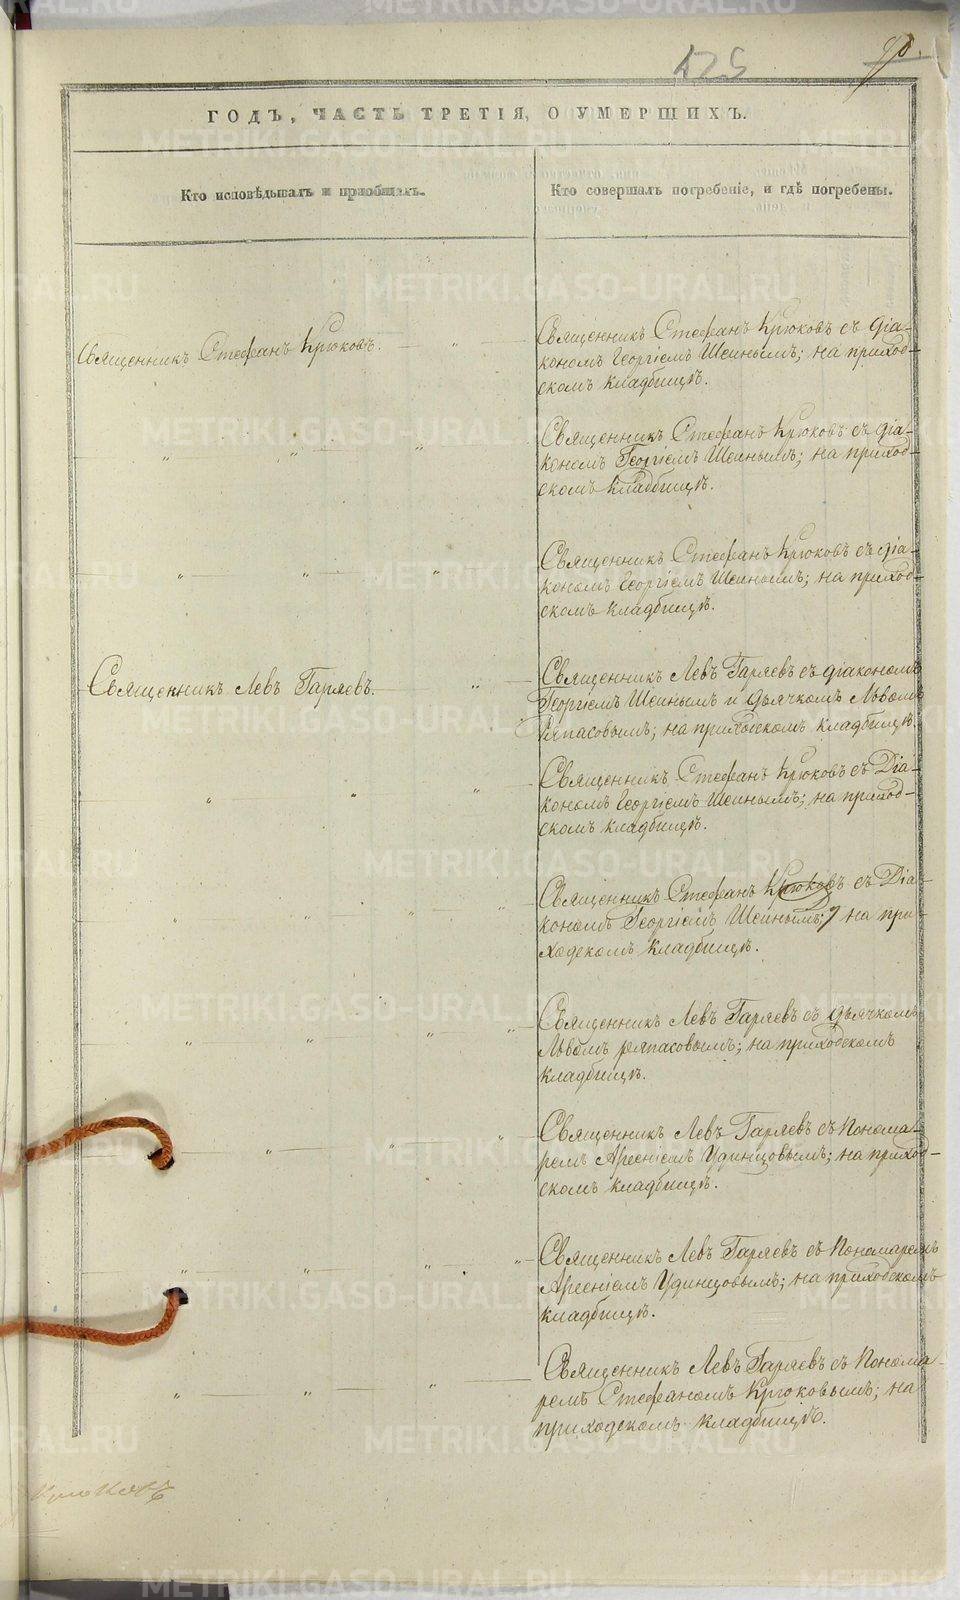 425
90.
ГОДЪ, ЧАСТЬ ТРЕТІЯ, О УМЕРШИХЪ.
Кто исповѣдывалъ и пріобщалъ.
Кто совершалъ погребеніе, и гдѣ погребены.
Священникъ Стефанъ Крюковъ.
Священникъ Стефанъ Крюковъ съ діа-
кономъ Георгіемъ Шеинымъ; на приход-
скомъ кладбищѣ.
Священникъ Стефанъ Крюковъ съ діа-
кономъ Георгіемъ Шеинымъ; на приход-
скомъ кладбищѣ.
Священникъ Стефанъ Крюковъ съ діа-
кономъ Георгіемъ Шеинымъ; на приход-
скомъ кладбищѣ.
Священникъ Левъ Гаряевъ.
Священникъ Левъ Гаряевъ съ діакономъ
Георгіемъ Шеинымъ и дьячкомъ Львомъ
Ряпасовымъ; на приходскомъ кладбищѣ.
Священникъ Стефанъ Крюковъ съ Діа-
кономъ Георгіемъ Шеинымъ; на приход-
скомъ кладбищѣ.
Священникъ Стефанъ Крюковъ съ Діа-
кономъ Георгіемъ Шеинымъ; на при-
ходскомъ кладбищѣ.
Священникъ Левъ Гаряевъ съ дьячкомъ
Львомъ Ряпасовымъ; на приходскомъ
кладбищѣ.
Священникъ Левъ Гаряевъ съ Понома-
ремъ Арсеніемъ Удинцовымъ; на приход-
скомъ кладбищѣ.
Священникъ Левъ Гаряевъ съ Пономаремъ
Арсеніемъ Удинцовымъ; на приходскомъ
кладбищѣ.
Священникъ Левъ Гаряевъ съ Понома-
ремъ Стефаномъ Крюковымъ; на
приходскомъ кладбищѣ.
Крюковъ
METRIKI.GASO-URAL.RU